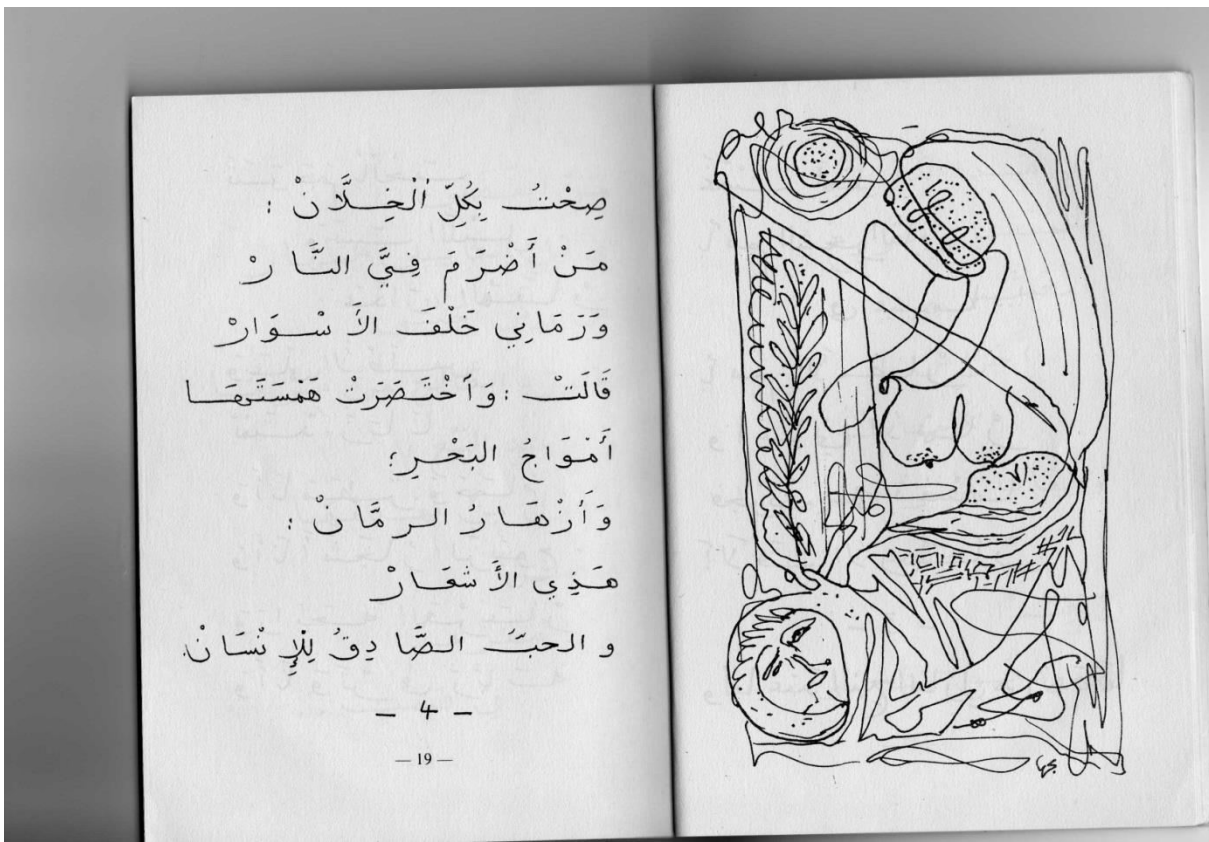 صِحْتُ بِكُلِّ الْخِلَّانْ :
مَنْ أَضْرَمَ فِيَّ النَّارْ
وَرَمَانِي خَلْفَ الأَسْوَارْ
قَالَتْ : وَاَخْتَصَرَتْ هَمْسَتَهَا
أَمْوَاجُ البَحْرِ؛
وَأَزْهَارُ الرمَّانْ :
هَذِي الأَشعَارْ
و الحبُّ الصَّادِقُ لِلْإِنْسَانْ.
– 4 –
— 19 —